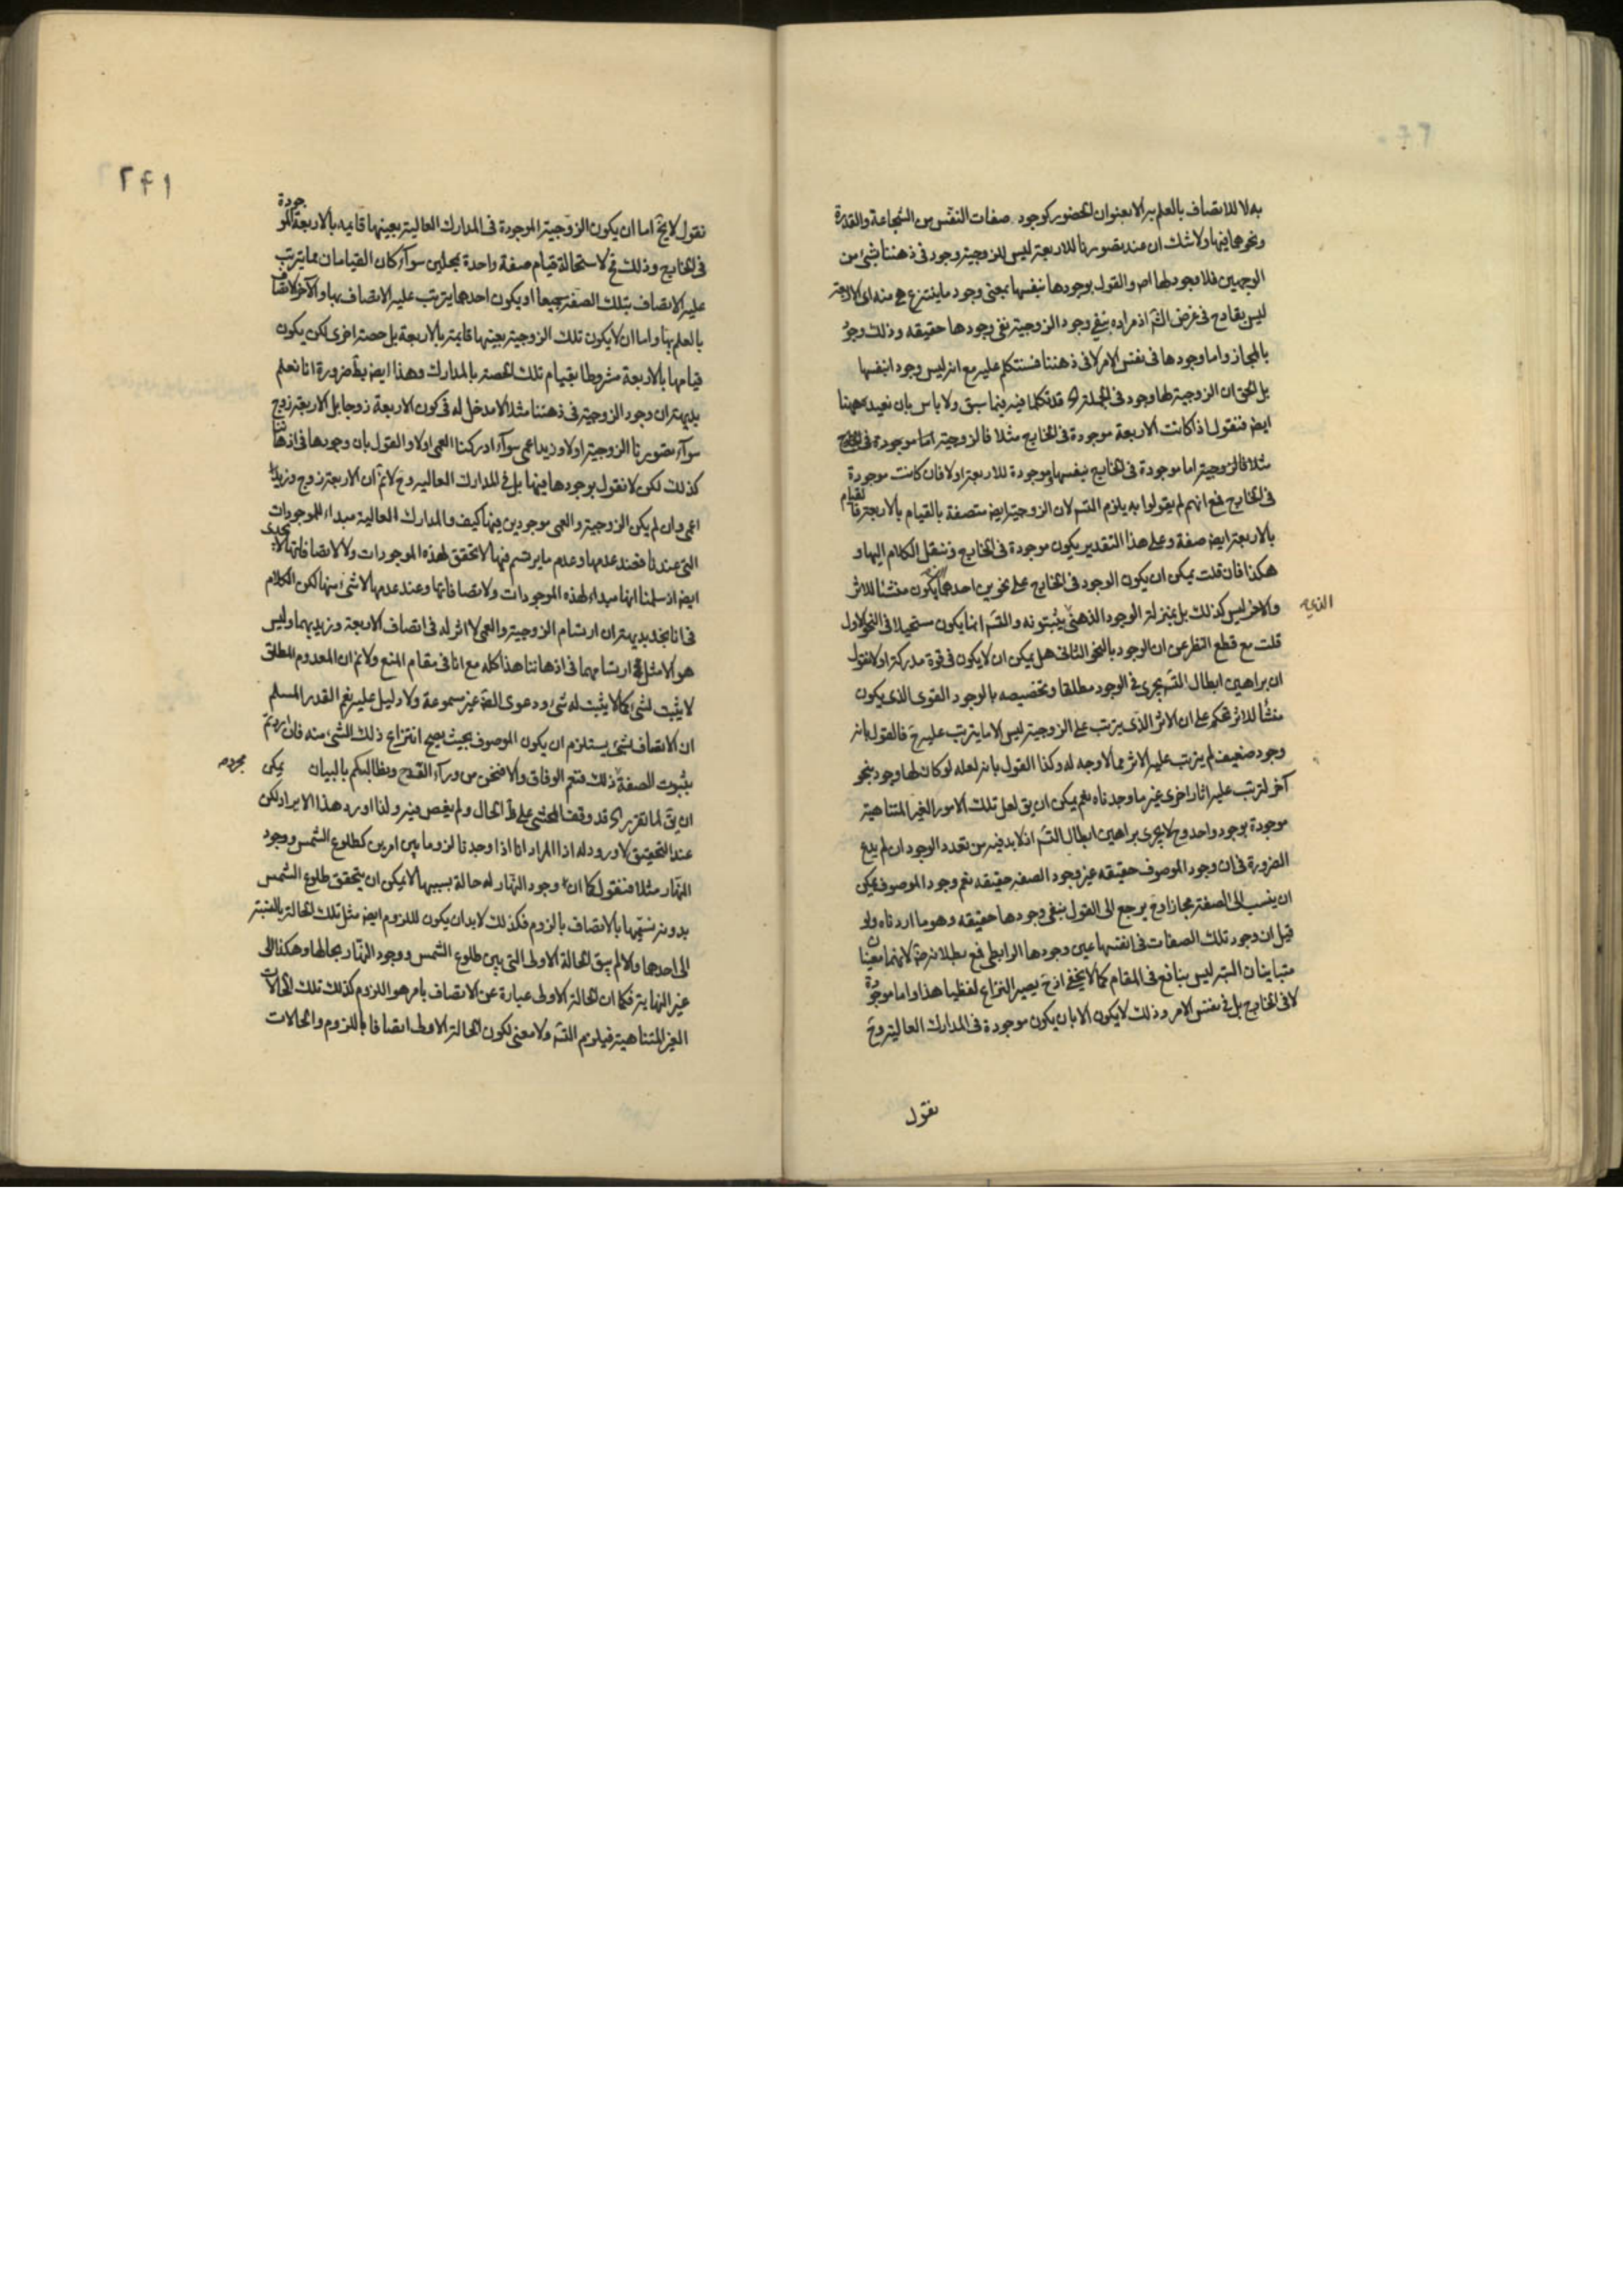 به لا للاتصاف بالعلم به الا بعنوان الحضور كوجود صفات النفس من الشجاعة والقدرة
ونحوها فيها ولا شك ان عند تصورنا للاربعة ليس للزوجية وجود في ذهننا بشئ من
الوجهين فلا وجود لها اصلا والقول بوجودها بنفسها بمعنى وجود ما ينتزع هي منه اى الاربعة
ليس بقادح في غرض الش‍ اذ مراده بنفي وجود الزوجية نفي وجودها حقيقه وذلك وجود
بالمجاز واما وجودها في نفس الامر لا في ذهننا فسنتكلم عليه مع انه ليس وجود انفسها
بل الحق ان الزوجية لها وجود في الجملة قد تكلمنا فيه فيما سبق ولا باس بان نعيده ههنا
ايض فنقول اذا كانت الاربعة موجودة في الخارج مثلا فالزوجية اما موجودة في الخارج
مثلا فالزوجية اما موجودة في الخارج بنفسها وموجودة للاربعة اولا فان كانت موجودة
في الخارج فمع انهم لم يقولوا به يلزم التس‍ لان الزوجية ايض متصفة بالقيام بالاربعة فالقيام
بالاربعة ايض صفة وعلى هذا التقدير يكون موجودة في الخارج وننقل الكلام اليها و
هكذا فان قلت يمكن ان يكون الوجود في الخارج على نحوين احدهما يكون منشئا للاثر
والاخر ليس كذلك بل بمنزلة الوجود الذهني يثبتونه والتس‍ انما يكون مستحيلا في النحو الاول
الذى
قلت مع قطع النظر عن ان الوجود بالنحو الثانى هل يمكن ان لا يكون في قوة مدركة اولا نقول
ان براهين ابطال التس‍ يجرى في الوجود مطلقا وتخصيصه بالوجود القوى الذى يكون
منشأ للاثر تحكم على ان الاثر الذى يترتب على الزوجية ليس الا ما يترتب عليه ح فالقول بانه
وجود ضعيف لم يترتب عليه الاثر مما لا وجه له وكذا القول بانه لعله لو كان لها وجود بنحو
آخر لترتب عليه اثار اخرى غير ما وجدناه نعم يمكن ان يق لعل تلك الامور الغير المتناهية
موجودة بوجود واحد وح لا يجرى براهين ابطال التس‍ اذ لا بد فيه من تعدد الوجود ان لم يدع
الضرورة في ان وجود الموصوف حقيقه غير وجود الصفة حقيقه نعم وجود الموصوف يمكن
ان ينسب الى الصفة مجازا وح يرجع الى القول بنفي وجودها حقيقه وهو ما اردناه ولو
قيل ان وجود تلك الصفات في انفسها عين وجودها الرابطى فمع بطلانه لانهما معنيان
متباينان البتة ليس بنافع في المقام كما لا يخفى اذ ح يصير النزاع لفظيا هذا واما موجودة
لا في الخارج بل في نفس الامر وذلك لا يكون الا بان يكون موجودة في المدارك العالية وح
نقول
٢٤١
نقول لا يخ اما ان يكون الزوجية الموجودة في المدارك العالية بعينها قايمه بالاربعة الموجودة
في الخارج وذلك مح لاستحالة قيام صفة واحدة بمحلين سوآء كان القيامان مما يترتب
عليه الاتصاف بتلك الصفة جميعا او يكون احدهما يترتب عليه الاتصاف بها والآخر لاتصاف
بالعلم بها واما ان لا يكون تلك الزوجية بعينها قايمة بالاربعة بل حصة اخرى لكن يكون
قيامها بالاربعة مشروطا بقيام تلك الحصة بالمدارك وهذا ايض بط ضرورة انا نعلم
بديهة ان وجود الزوجية في ذهننا مثلا لا مدخل له في كون الاربعة زوجا بل الاربعة زوج
سوآء تصورنا الزوجية اولا وزيد اعمى سوآء ادركنا العمى اولا والقول بان وجودها في اذهاننا
كذلك لكن لا نقول بوجودها فيها بل في المدارك العاليه وح لا نم ان الاربعة زوج وزيدا
اعمى وان لم يكن الزوجية والعمى موجودين فيها كيف والمدارك العالية مبداء للموجودات
التى عندنا فعند عدمها وعدم ما يرتسم فيها لا تحقق لهذه الموجودات ولا لاتصافاتها لا يجدى
ايض اذ سلمنا انها مبداء لهذه الموجودات ولاتصافاتها وعند عدمها لا شئ منها لكن الكلام
في انا نجد بديهة ان ارتسام الزوجية والعمى لا اثر له في اتصاف الاربعة وزيد بهما وليس
هو الا مثل ارتسامهما في اذهاننا هذا كله مع انا في مقام المنع ولا نم ان المعدوم المطلق
لا يثبت لشئ كما لا يثبت له شئ ودعوى الضرورة غير مسموعة ولا دليل عليه نعم القدر المسلم
ان الاتصاف بشئ يستلزم ان يكون الموصوف بحيث يصح انتزاع ذلك الشئ منه فان اردتم
بثبوت الصفة ذلك فنعم الوفاق والا فنحن من ورآء القدح ونطالبكم بالبيان يمكن
ان يق لما تقرير قد وقف المحشى على ظ الحال ولم يغص فيه ولنا اورد هذا الايراد لكن
عند التحقيق لا ورود له اذ المراد انا اذا وجدنا لزوما بين امرين كطلوع الشمس ووجود
النهار مثلا فنقول كما ان وجود النهار له حالة بسببها لا يمكن ان يتحقق طلوع الشمس
بدونه نسميها بالاتصاف بالزوم فكذلك لا بد ان يكون للزوم ايض مثل تلك الحالة بالنسبة
الى احدهما والا لم يبق الحالة الاولى التى بين طلوع الشمس ووجود النهار بحالها وهكذا الى
غير النهاية فكما ان الحالة الاولى عبارة عن الاتصاف بامر هو اللزوم كذلك تلك الحالات
الغير المتناهية فيلزم التس‍ ولا معنى لكون الحالة الاولى اتصافا باللزوم والحالات